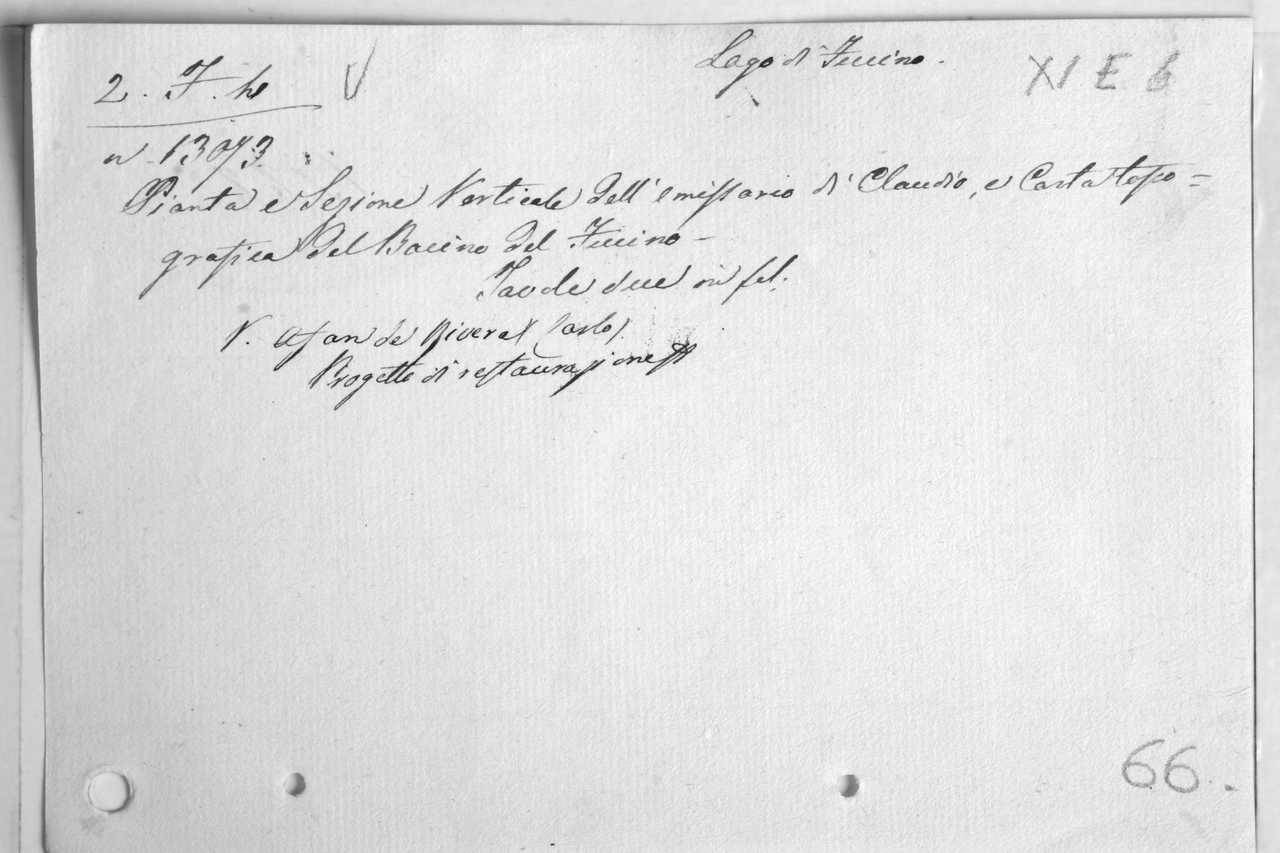 Lago di Fucino.
XI E 6
2. F. he V
n. 13073.
Pianta e Sezione Verticale dell'emissario di Claudio, e Carta topo=
grafica del Bacino del Fucino-
Tavole due in fol.
V. Afan de Rivera (Carlo)
Progetto di restaurazione
66.